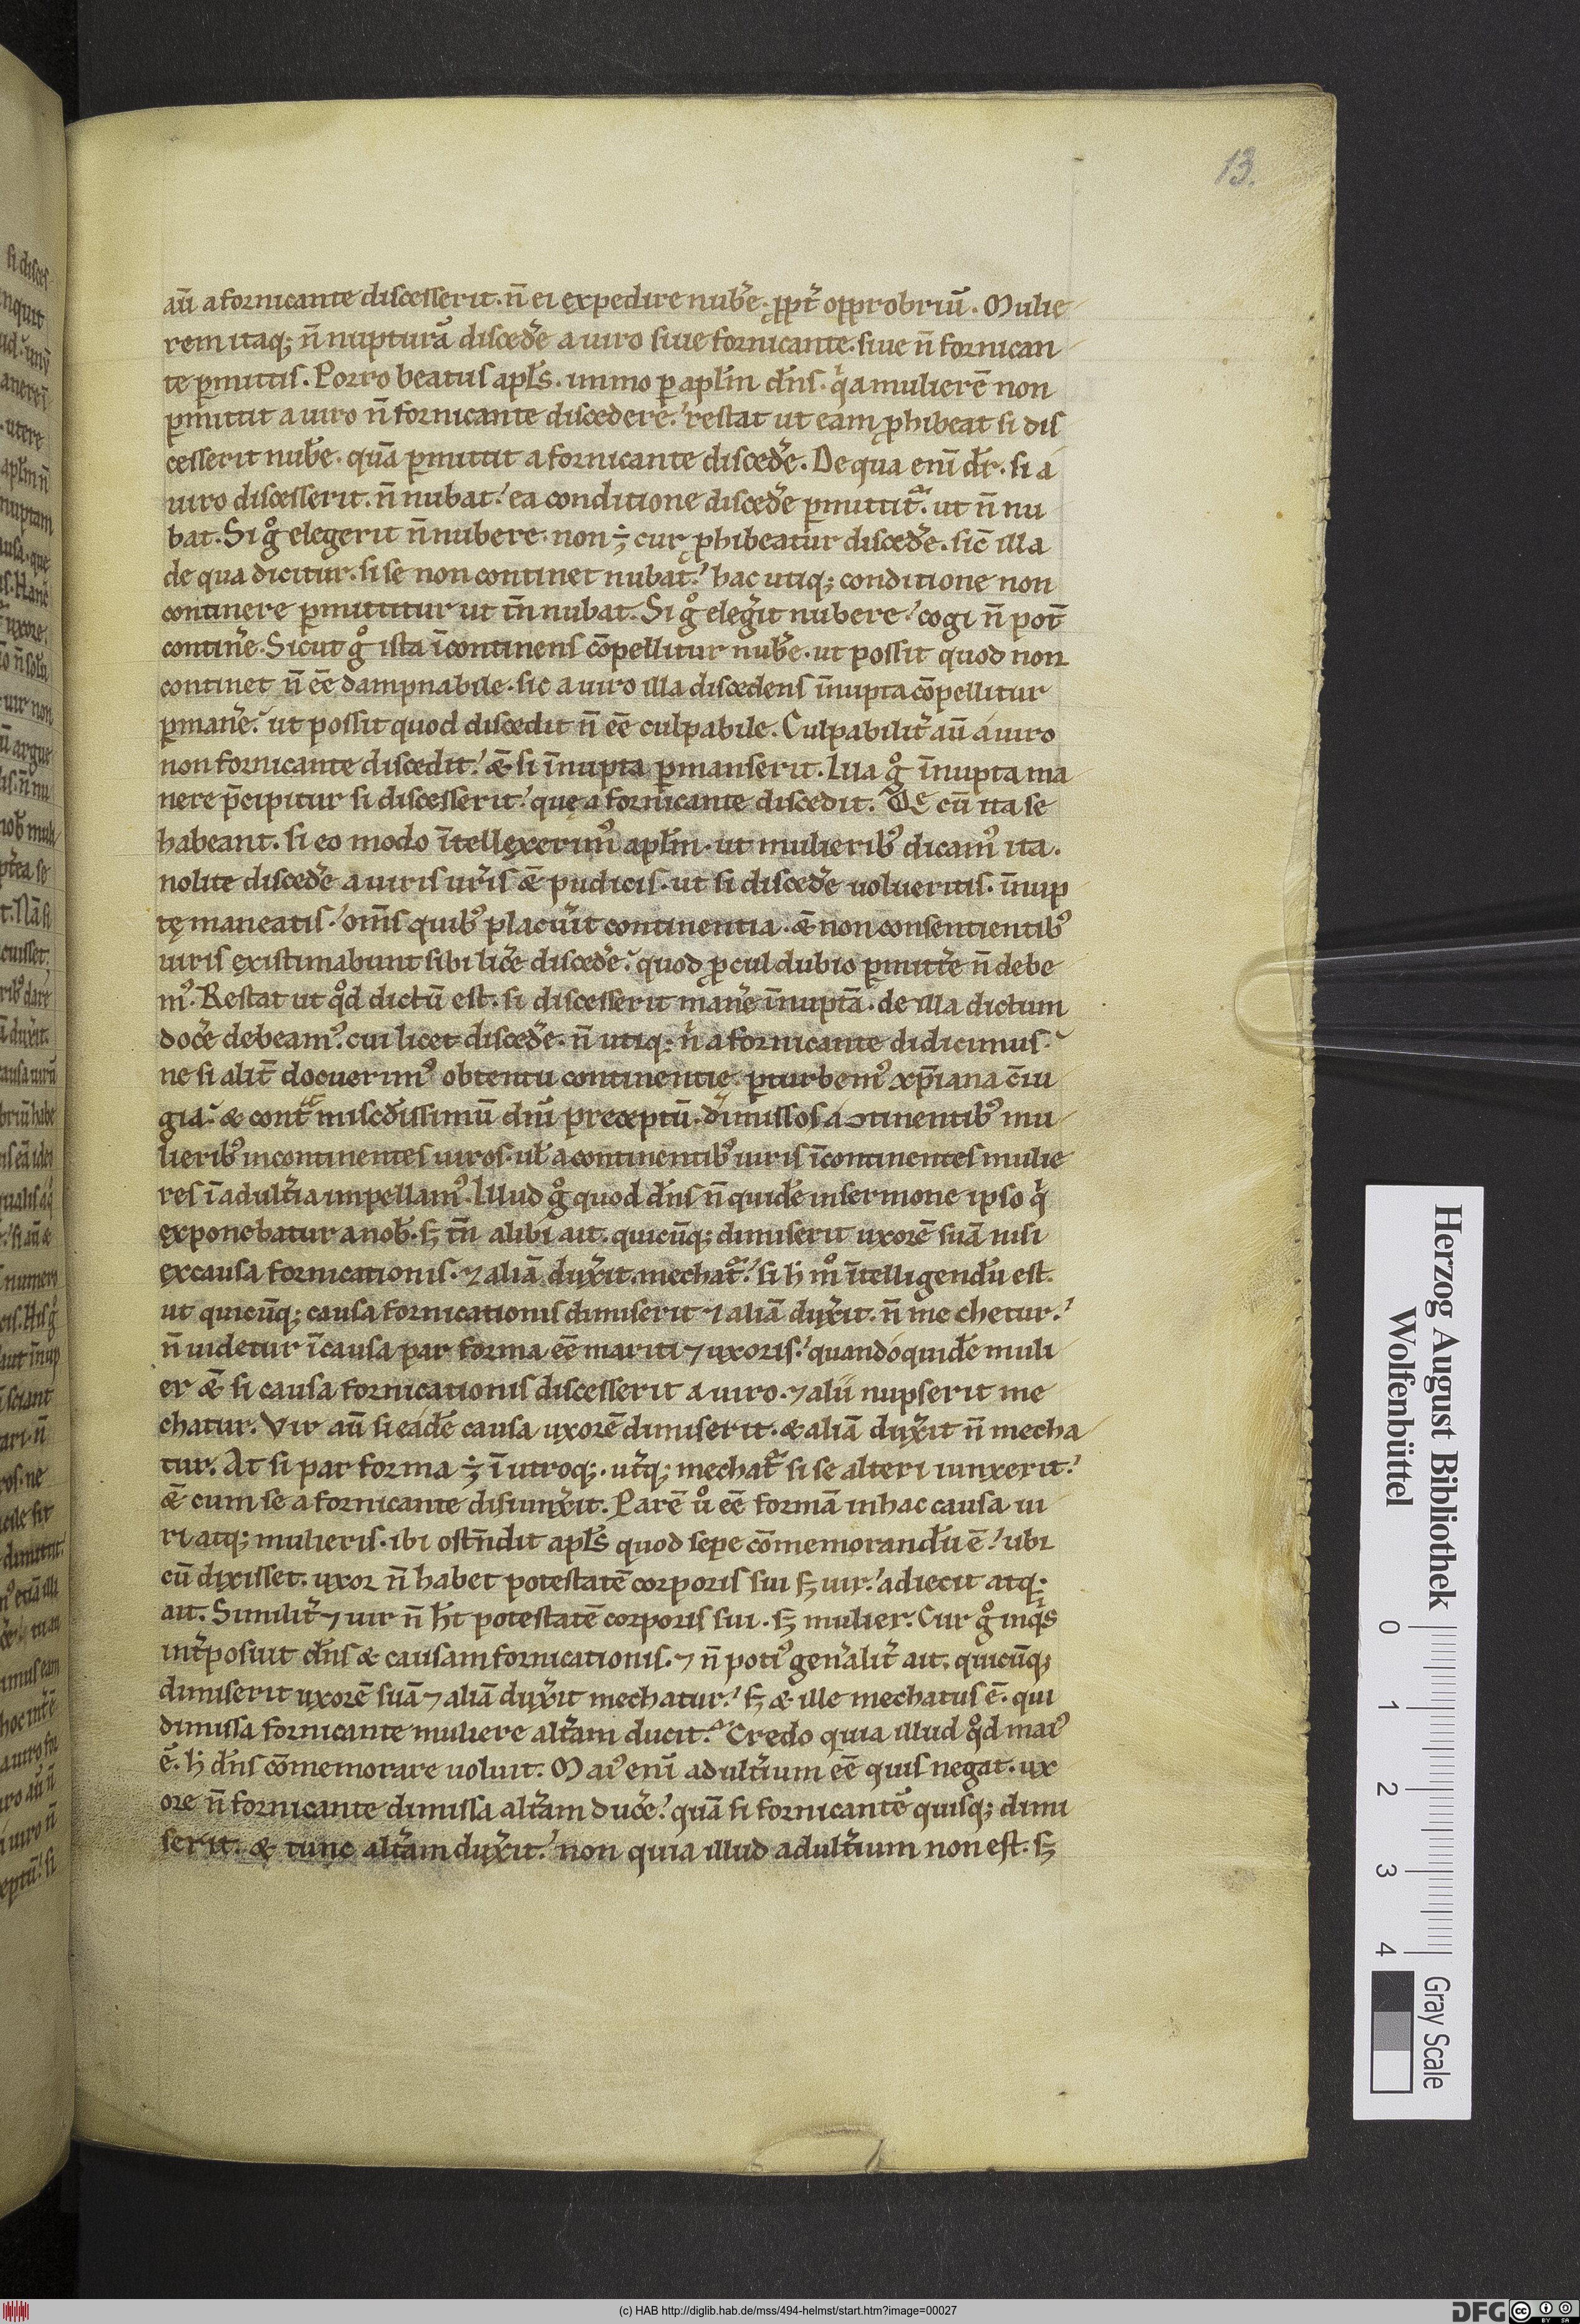 13.
aū a fornicante discesserit. n̄ ei expedire nub̄e. ꝓpt̄ opprobriū. Mulie
rem itaq; n̄ nupturā disced̄e a uiro siue fornicante. siue n̄ fornican
te ꝑmittis. Porro beatus apl̄s. immo ꝑ apl̄m dn̄s. qͥa mulierē non
ꝑmittit a uiro n̄ fornicante discedere. restat ut eam ꝓhibeat si dis
cesserit nub̄e. quā ꝑmittit a fornicante disced̄e. De qua enī dr̄. si a
uiro discesserit. n̄ nubat. ea conditione disced̄e ꝑmittit᷑. ut n̄ nu
bat. Si gͦ elegerit n̄ nubere. non ÷ cur ꝓhibeatur disced̄e. sic̄ illa
de qua dicitur. si se non continet nubat. hac utiq; conditione non
continere ꝑmittitur ut tn̄ nubat. Si gͦ eleḡit nubere. cogi n̄ pot̄
contin̄e. Sicut gͦ ista īcontinens cōpellitur nub̄e. ut possit quod non
continet n̄ eē dampnabile. sic a uiro illa discedens īnupta cōpellitur
ꝑman̄e. ut possit quod discedit n̄ eē culpabile. Culpabilit̄ aū a uiro
non fornicante discedit. &̄ si īnupta ꝑmanserit. Illa gͦ īnupta ma
nere p̄cipitur si discesserit. quę a fornicante discedit. QE cū ita se
habeant. si eo modo ītellęxerimꝰ apl̄m. ut mulieribꝰ dicamꝰ ita.
nolite disced̄e a uiris ur̄is &̄ pudicis. ut si disced̄e uolueritis. īnup
tę maneatis. om̄s quibꝰ placūit continentia. & non consentientibꝰ
uiris existimabunt sibi lic̄e disced̄e. quod ꝓcul dubio ꝑmitt̄e n̄ debe
mꝰ. Restat ut qͦd dictū est. si discesserit man̄e īnuptā. de illa dictum
doc̄e debeamꝰ. cui licet disced̄e. n̄ utiq; n̄ a fornicante didicimus.
ne si alit̄ docuerimꝰ obtentu continentię. ꝑturbemꝰ xp̄iana c̄iu
gia. & cont misc̄dissimū dn̄i preceptū. dimissos a ↄtinentibꝰ mu
lieribꝰ incontinentes uiros. ul̄ a continentibꝰ uiris īcontinentes mulie
res ī adult̄ia impellamꝰ. Illud gͦ quod dn̄s n̄ quidē in sermone ipso qͥ
exponebatur a nob̄. s; tn̄ alibi ait. quicūq; dimiserit uxorē suā nisi
ex causa fornicationis. ⁊ aliā dux̄it. mechat᷑. si h̄ mͦ ītelligendū est.
ut quicūq; causa fornicationis dimiserit ⁊ aliā dux̄it. n̄ mechetur.
n̄ uidetur ī causa par forma eē mariti ⁊ uxoris. quandoquidē muli
er &̄ si causa fornicationis discesserit a uiro. ⁊ alii nupserit me
chatur. Vir aū si eadē causa uxorē dimiserit. & aliā dux̄it n̄ mecha
tur. At si par forma ÷ ī utroq;. ut̄q; mechat᷑ si se alteri iunxerit.
&̄ cum se a fornicante disiunx̄it. Parē uͦ eē formā in hac causa ui
ri atq; mulieris. ibi ostn̄dit apl̄s quod sepe cōmemorandū ē. ubi
cū dixisset. uxor n̄ habet potestatē corporis sui s; uir. adiecit atq;
ait. Similit̄ ⁊ uir n̄ ht̄ potestatē corporis sui. s; mulier. Cur gͦ inqͥs
int̄posiut dn̄s & causam fornicationis. ⁊ n̄ potiꝰ gen̄alit̄ ait. quicūq;
dimiserit uxorē suā ⁊ aliā dux̄it mechatur. s; & ille mechatus ē. qui
dimissa fornicante muliere alt̄am ducit. Credo quia illud qͦd maiꝰ
ē. h̄ dn̄s cōmemorare uoluit. Maiꝰ enī adult̄ium eē quis negat. ux
ore n̄ fornicante dimissa alt̄am duc̄e. quā si fornicantē quisq; dimi
serit. & tunc alt̄am dux̄it. non quia illud adult̄ium non est. s;
Herzog August Bibliothek
Wolfenbüttel
0 1 2 3 4
Gray Scale
(c) HAB http://diglib.hab.de/mss/494-helmst/start.htm?image=00027
DFG